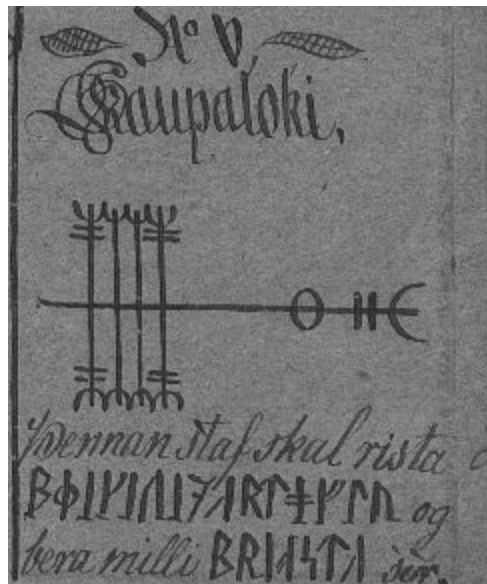 No V,
Kaupaloki.
Þennan staf skal rista
og
bera milli sér.